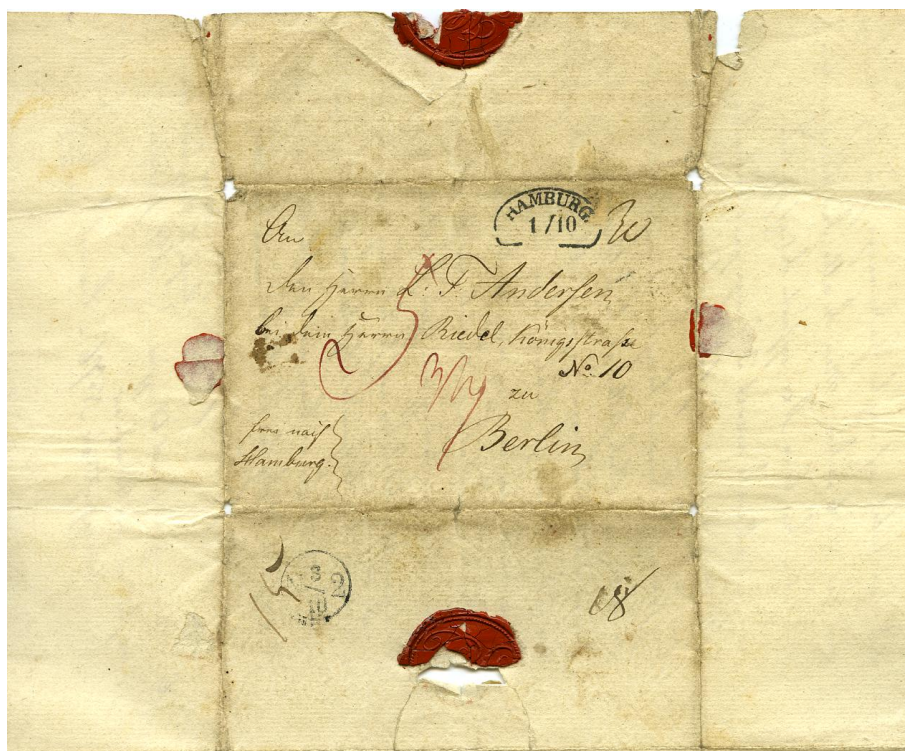 HAMBURG.
1/10
An
den Herrn L: T. Andersen
bei dem Herrn Riedel, Königsstraße
No 10
zu
Berlin
frei nach
Hamburg.
3
2